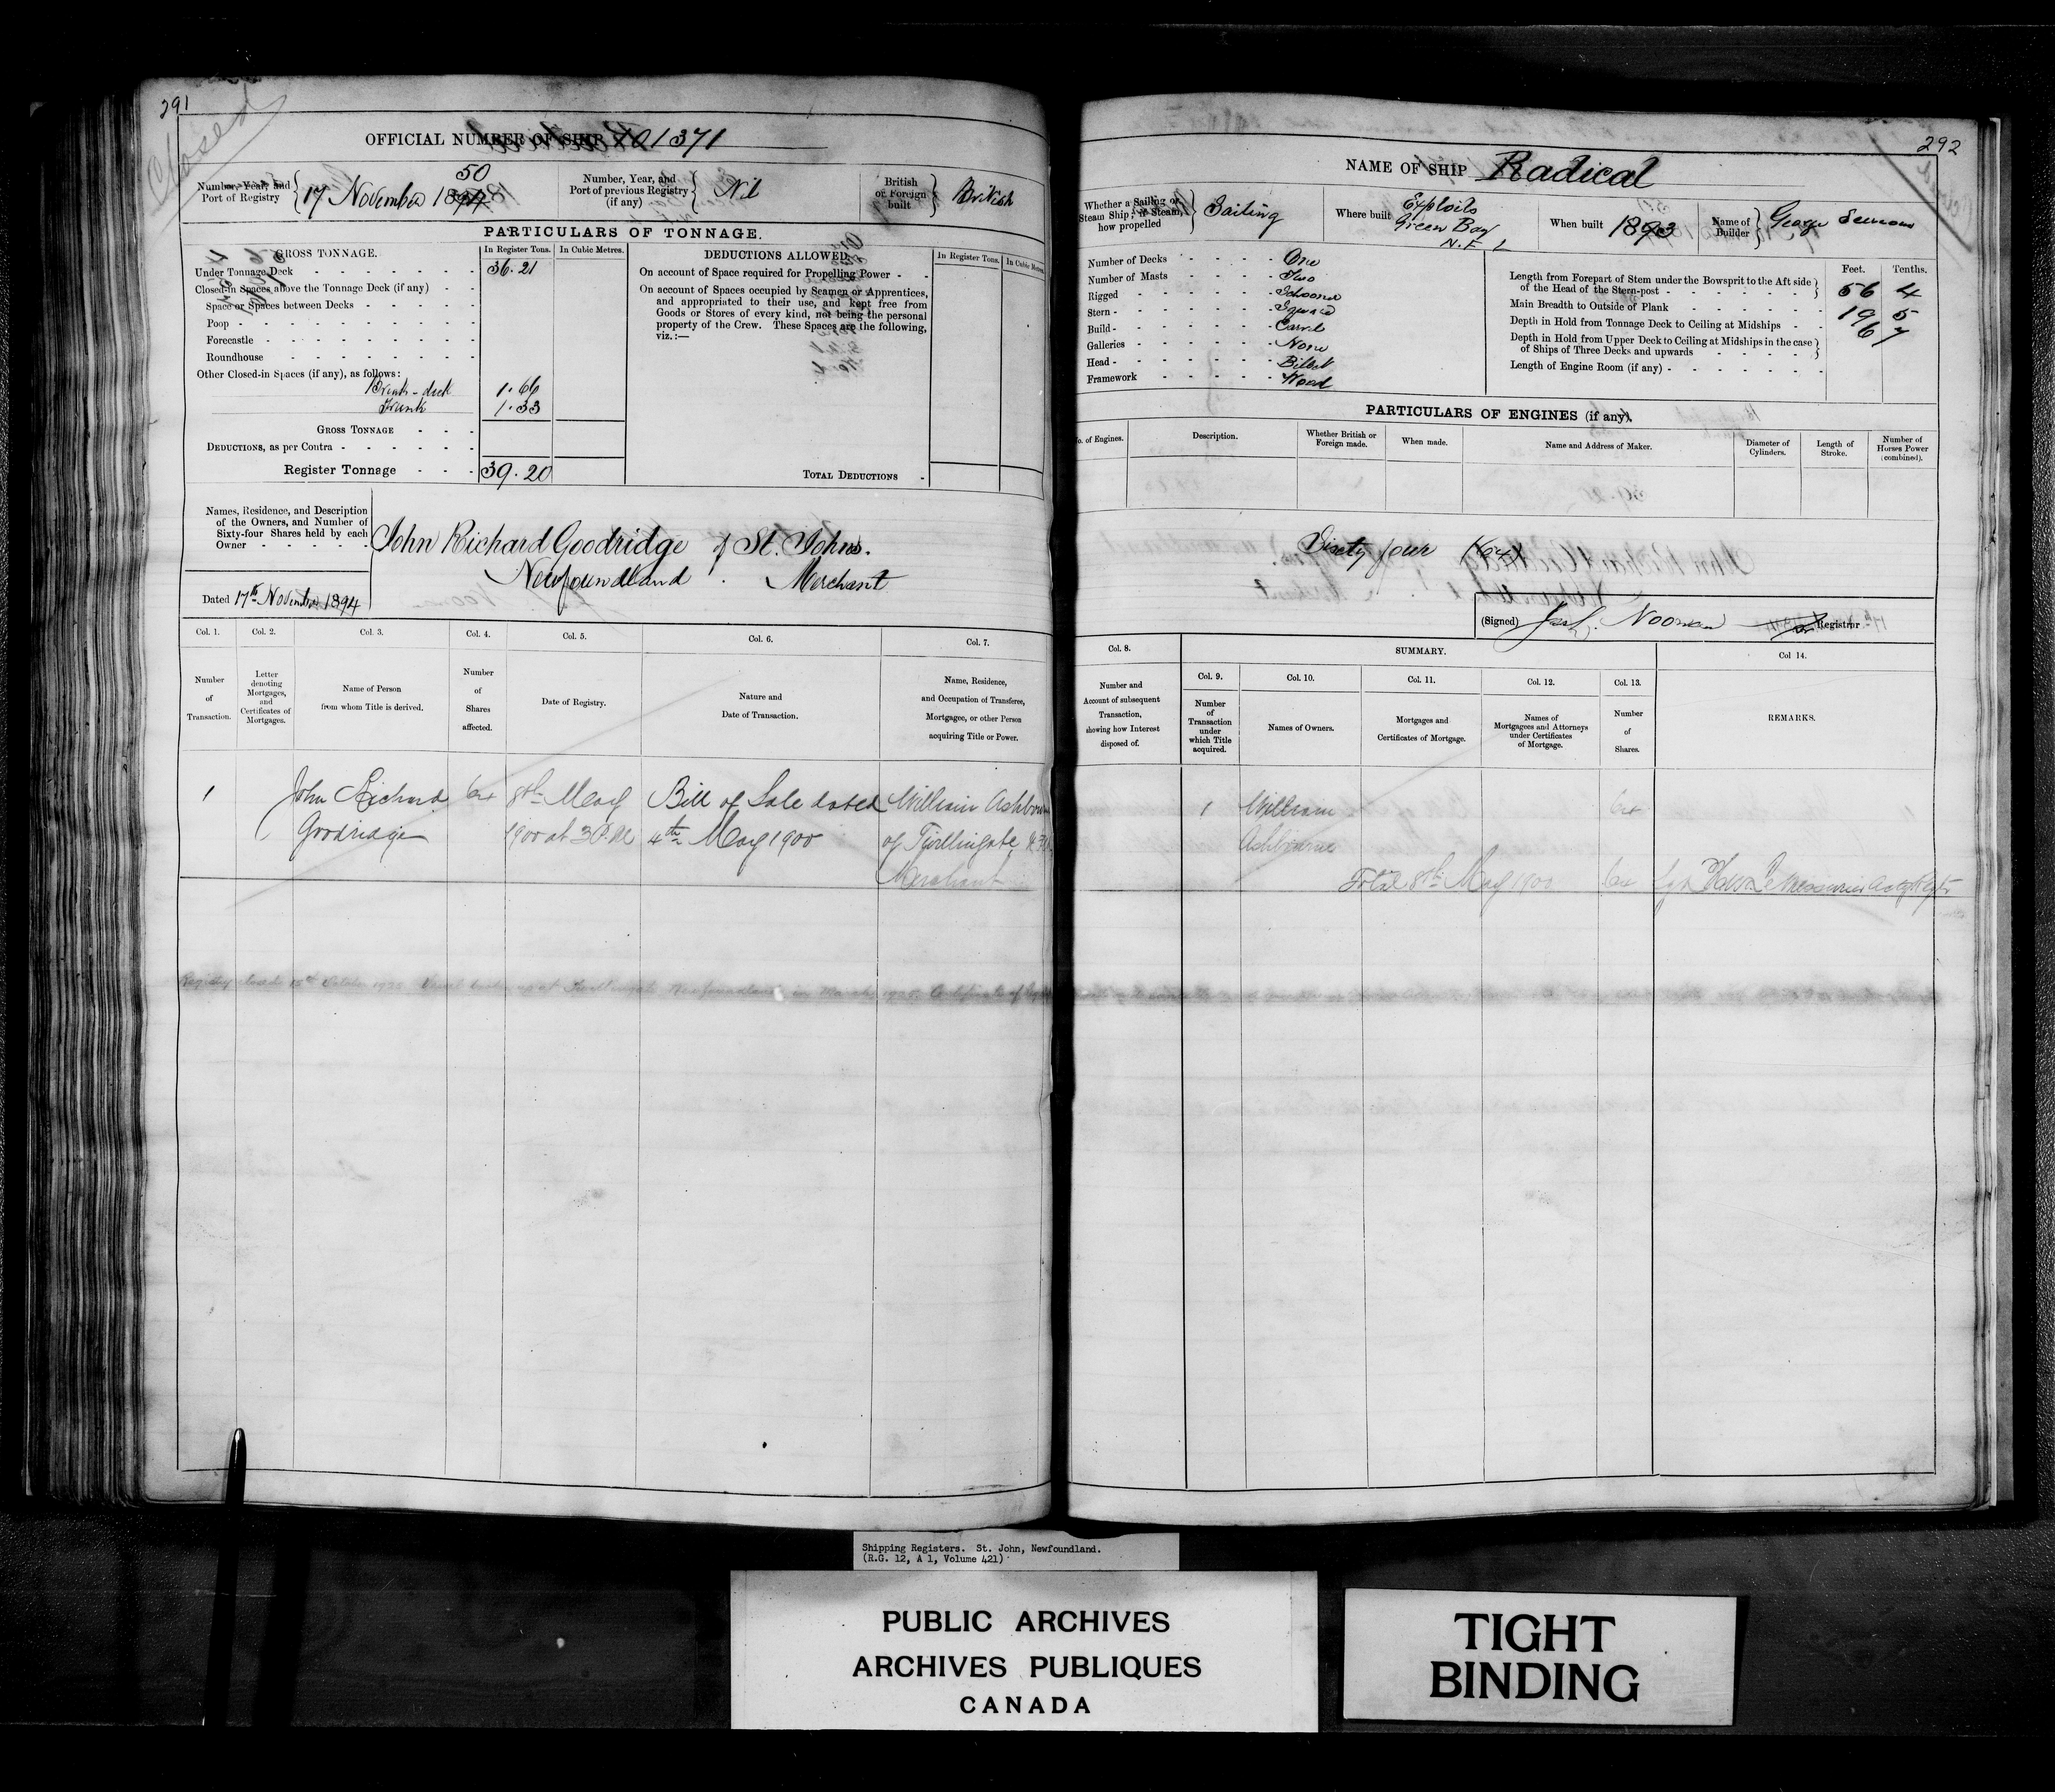 291
Closed
OFFICIAL NUMBER OF SHIP 101371
Number, Year, and
Port of Registry
50
17 November 1894
Number, Year, and
Port of previous Registry
(if any)
Nil
British
or Foreign
built
British
PARTICULARS OF TONNAGE.
GROSS TONNAGE.
In Register Tons.
In Cubic Metres.
Under Tonnage Deck 36.21
Closed-in Spaces above the Tonnage Deck (if any)
Space or Spaces between Decks
Poop
Forecastle
Roundhouse
Other Closed-in Spaces (if any), as follows:
Break-deck 1.66
Trunk 1.33
GROSS TONNAGE
DEDUCTIONS, as per Contra
Register Tonnage 39.20
DEDUCTIONS ALLOWED.
In Register Tons.
In Cubic Metres.
On account of Space required for Propelling Power
On account of Spaces occupied by Seamen or Apprentices,
and appropriated to their use, and kept free from
Goods or Stores of every kind, not being the personal
property of the Crew. These Spaces are the following,
viz.:—
TOTAL DEDUCTIONS
Names, Residence, and Description
of the Owners, and Number of
Sixty-four Shares held by each
Owner
John Richard Goodridge of St. Johns.
Newfoundland. Merchant
Dated 17th November 1894
Col. 1.
Col. 2.
Col. 3.
Col. 4.
Col. 5.
Col. 6.
Col. 7.
Number
of
Transaction.
Letter
denoting
Mortgages,
and
Certificates of
Mortgages.
Name of Person
from whom Title is derived.
Number
of
Shares
affected.
Date of Registry.
Nature and
Date of Transaction.
Name, Residence,
and Occupation of Transferee,
Mortgagee, or other Person
acquiring Title or Power.
1 John Richard 64 8th May Bill of Sale dated William Ashbourne
Goodridge 1900 at 3 P.M 4th May 1900 of Twillingate
Merchant
Registry closed
292
NAME OF SHIP Radical
Whether a Sailing or
Steam Ship; if Steam,
how propelled
Sailing
Where built
Exploits
Green Bay
N.F.L
When built 1893
Name of
Builder
George
Number of Decks One
Number of Masts Two
Rigged Schooner
Stern Square
Build Carvel
Galleries None
Head Billet
Framework Wood
Feet.
Tenths.
Length from Forepart of Stem under the Bowsprit to the Aft side
of the Head of the Stern-post 56 4
Main Breadth to Outside of Plank 19 5
Depth in Hold from Tonnage Deck to Ceiling at Midships 6 7
Depth in Hold from Upper Deck to Ceiling at Midships in the case
of Ships of Three Decks and upwards
Length of Engine Room (if any)
PARTICULARS OF ENGINES (if any).
No. of Engines.
Description.
Whether British or
Foreign made.
When made.
Name and Address of Maker.
Diameter of
Cylinders.
Length of
Stroke.
Number of
Horses Power
(combined).
Sixty four (64)
(Signed) Noonan Registrar
Col. 8.
SUMMARY.
Col 14.
Number and
Account of subsequent
Transaction,
showing how Interest
disposed of.
Col. 9.
Col. 10.
Col. 11.
Col. 12.
Col. 13.
Number
of
Transaction
under
which Title
acquired.
Names of Owners.
Mortgages and
Certificates of Mortgage.
Names of
Mortgagees and Attorneys
under Certificates
of Mortgage.
Number
of
Shares.
REMARKS.
1 William 64
Ashbourne
Total 8th May 1900 64
Shipping Registers. St. John, Newfoundland.
(R.G. 12, A 1, Volume 421)
PUBLIC ARCHIVES
ARCHIVES PUBLIQUES
CANADA
TIGHT
BINDING